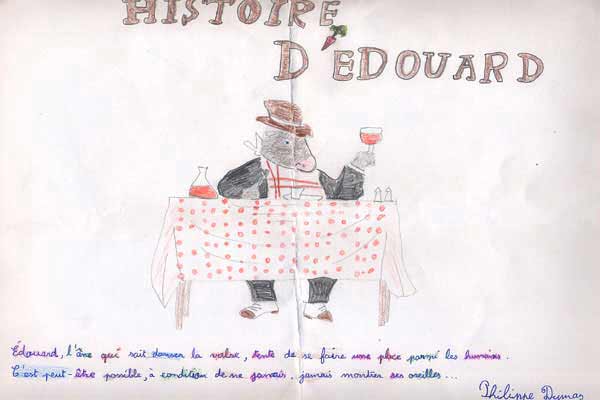 HISTOIRE
D'EDOUARD
Édouard, l'âne qui sait danser la valse, tente de se faire une place parmi les humains.
C'est peut-être possible, à condition de ne jamais, jamais montrer ses oreilles...
Philippe Dumas